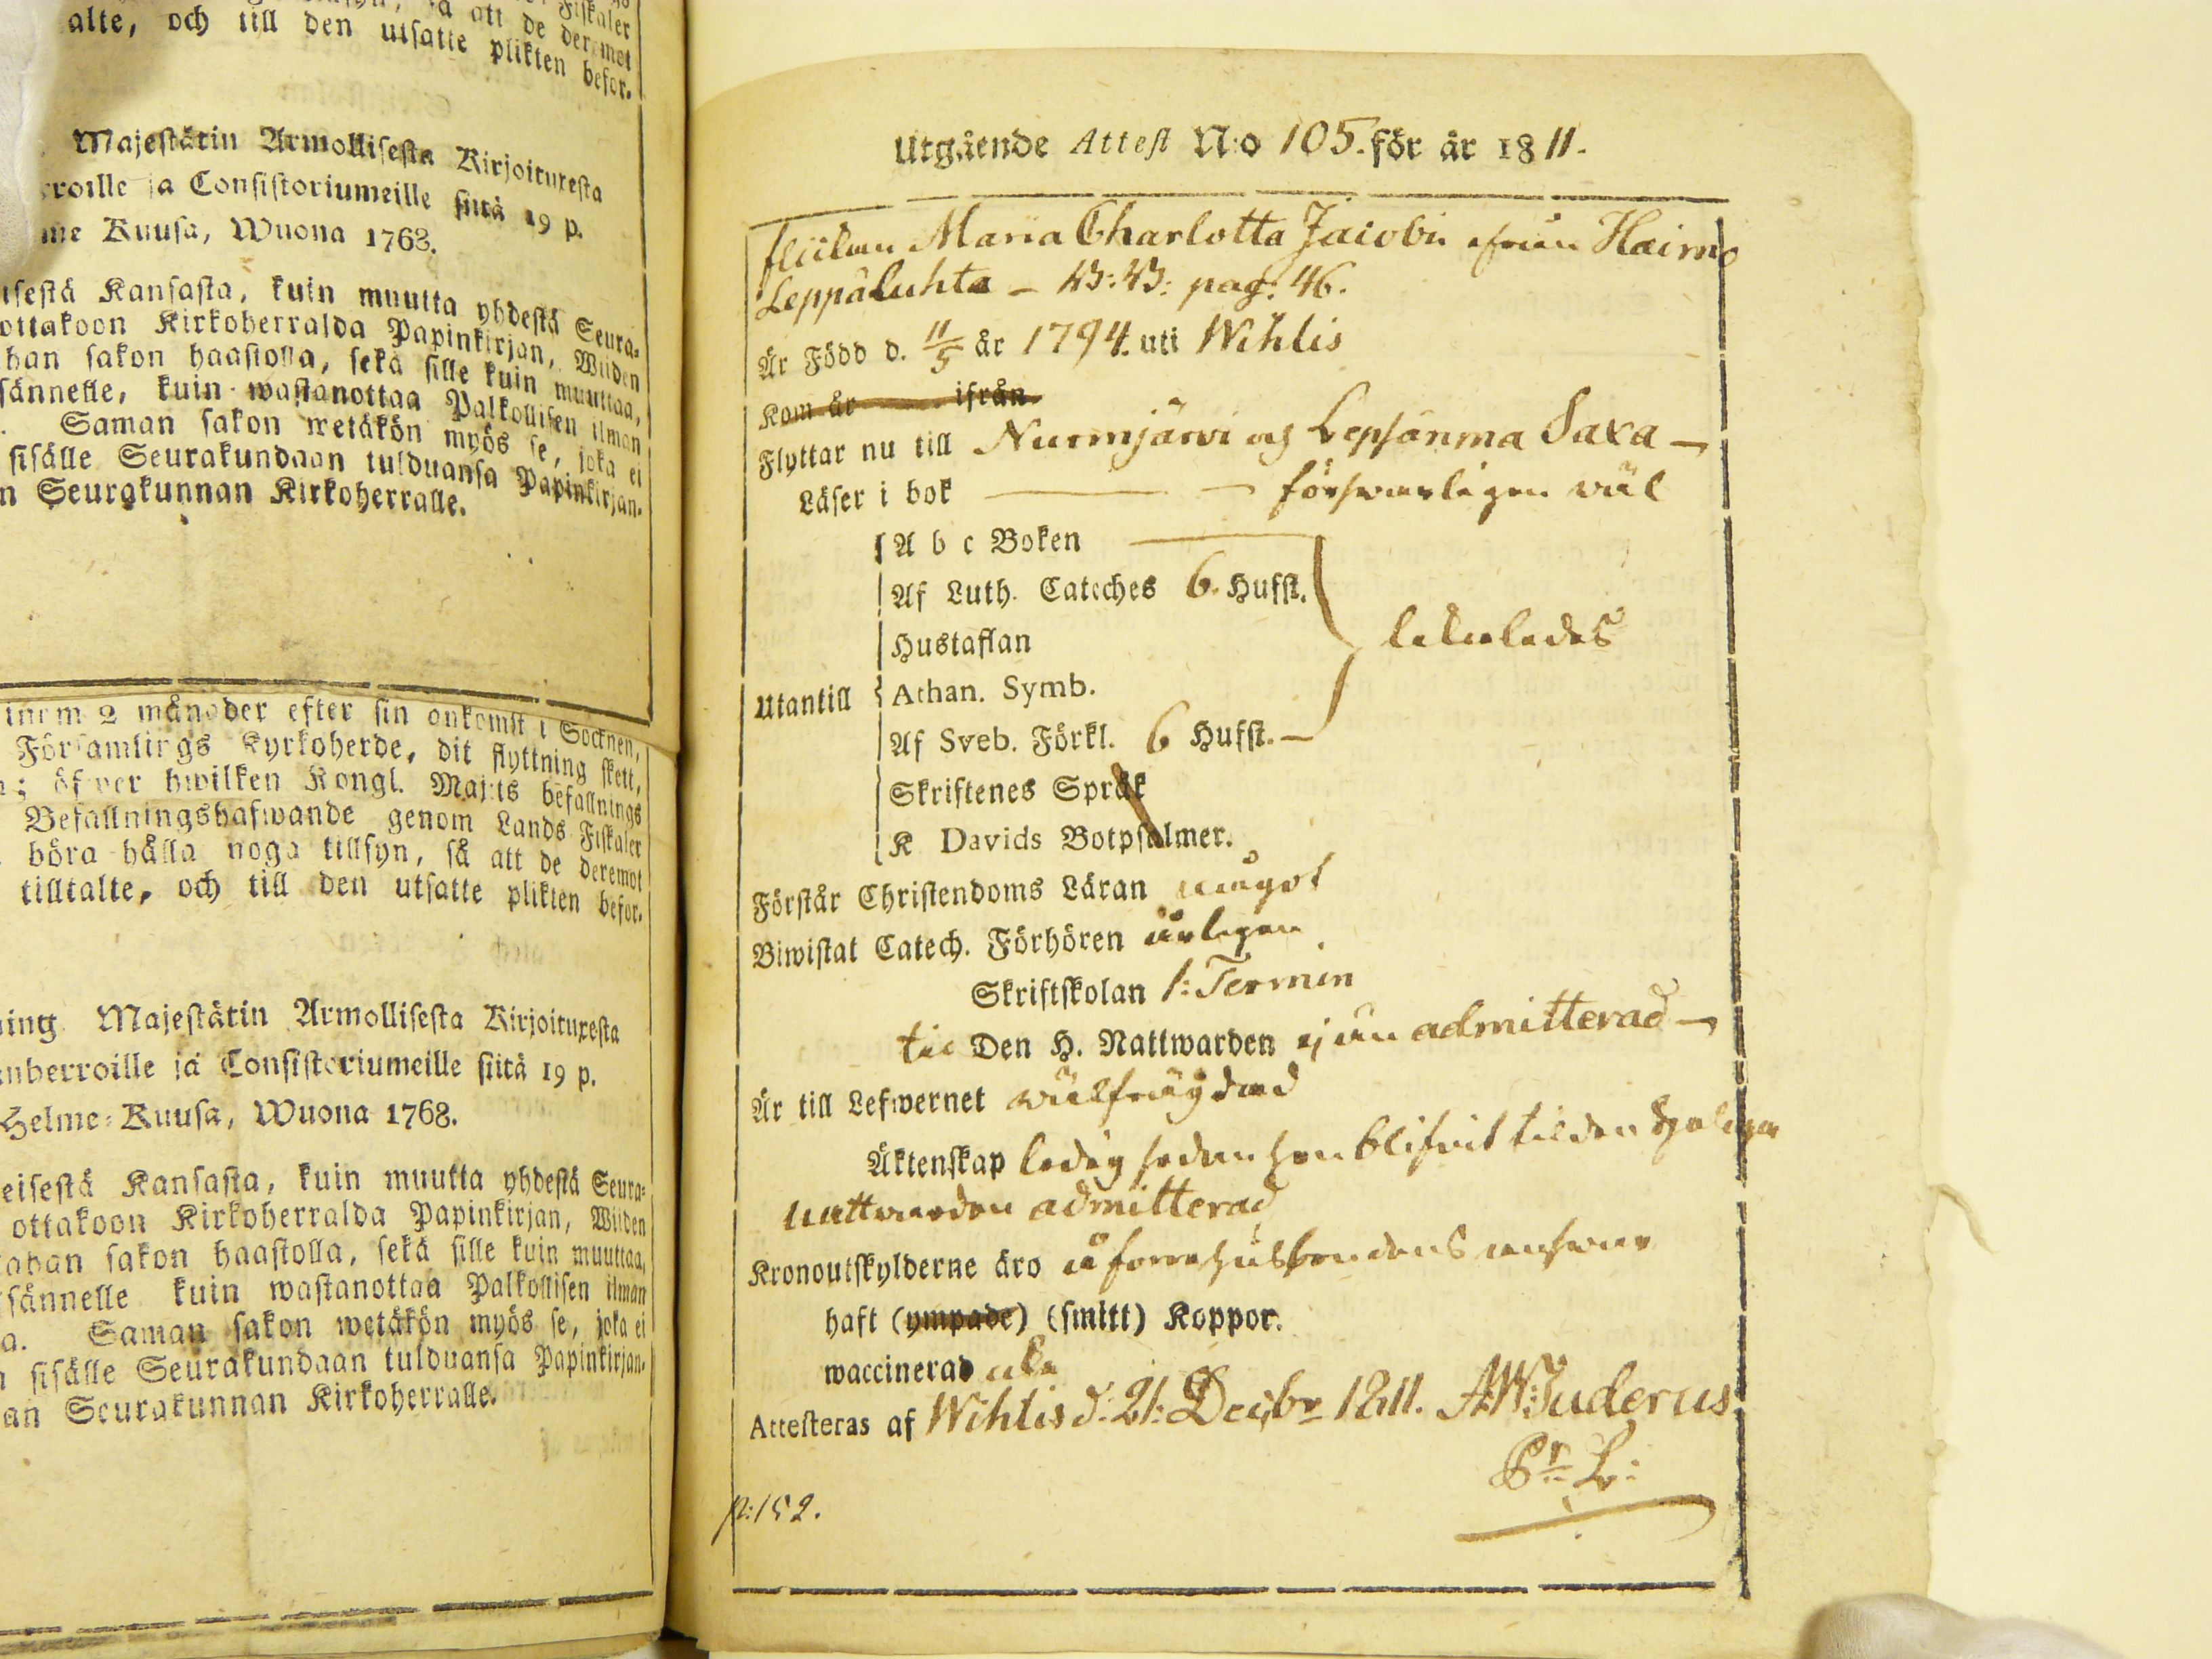 alte, och till den utsatte plikten befor.
Majestätin Armollisesta Kirjoituxesta
rroille ja Consistoriumeille siitä 19 p.
me Kuusa, Wuona 1768.
isestä Kansasta, kuin muutta yhdestä Seura-
ottakoon Kirkoherralda Papinkirjan, Wiiden
han sakon haastolla, sekä sille kuin muuttaa,
sännelle, kuin wastanottaa Palkollisen ilman
Saman sakon wetäkön myös se, joka ei
sisälle Seurakundaan tulduansa Papinkirjan-
n Seurakunnan Kirkoherralle.
innom 2 månader efter sin ankomst i Socknen,
Församlings Kyrkoherde, dit flyttning skett,
; öfwer hwilken Kongl. Maj:ts befallnings
Befallningshafwande genom Lands Fiskaler
böra hålla noga tillsyn, så att de deremot
tilltalte, och till den utsatte plikten befor.
ning Majestätin Armollisesta Kirjoituxesta
nherroille ja Consistoriumeille siitä 19 p.
Helme-Kuusa, Wuona 1768.
eisestä Kansasta, kuin muutta yhdestä Seura-
ottakoon Kirkoherralda Papinkirjan, Wiiden
ahan sakon haastolla, sekä sille kuin muuttaa,
sännelle kuin wastanottaa Palkollisen ilman
a. Saman sakon wetäkön myös se, joka ei
sisälle Seurakundaan tulduansa Papinkirjan-
an Seurakunnan Kirkoherralle.
Utgående Attest N:o 105. för år 1811.
flickan Maria Charlotta Jacobi ifrån Haimo
Leppäluhta - pag: 46.
Är Född d. 11/5 år 1794. uti Wihlis
Kom år ifrån.
Flyttar nu till Nurmjärwi och Lepsänma Saxa -
Läser i bok - försvarligen wäl
A b c Boken
Af Luth. Cateches 6. Hufst.
Hustaflan likaledes
Utantill Athan. Symb.
Af Sveb. Förkl. 6 Hufst.
Skriftenes Språk
K Davids Botpsalmer.
Förstår Christendoms Läran något
Biwistat Catech. Förhören årligen
Skriftskolan 1: Termin
til Den H. Nattwarden ej än admitterad -
Är till Lefwernet wälfrägdad
Äktenskap ledig sedan hon blifvit til den Heliga
nattvarden admitterad
Kronoutskylderne äro å förra husbondens answar
haft (ympade) (smitt) Koppor.
waccinerad
Attesteras af Wihlis d: 21: Decbr 1811. A:W:Juderus
p: 152.